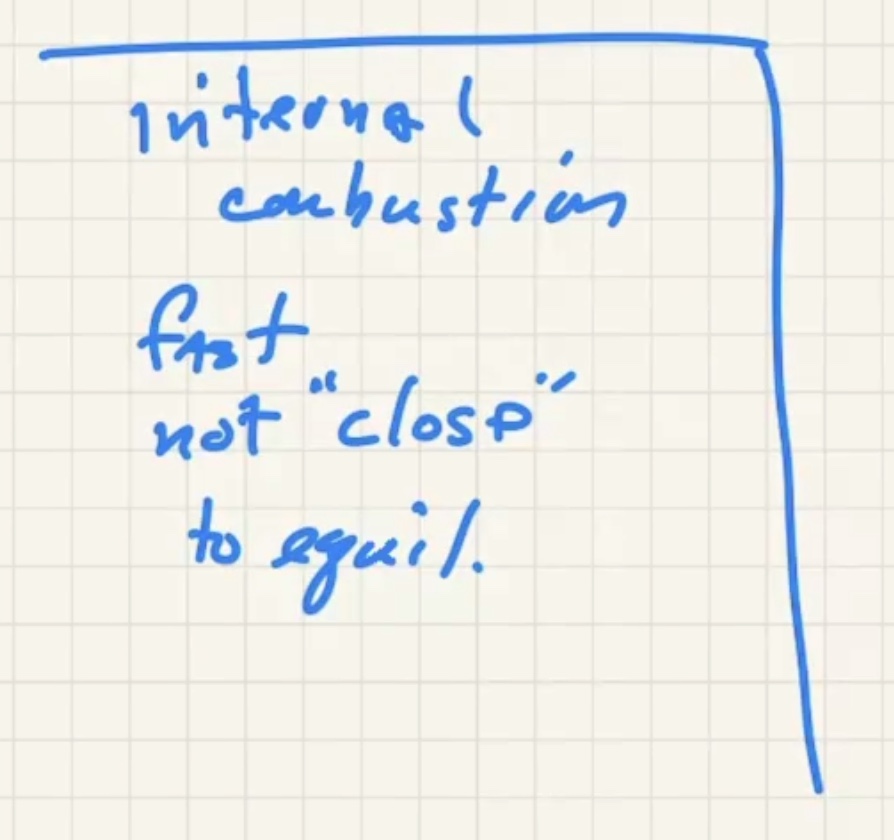 internal
combustion
fast
not "close"
to equil.